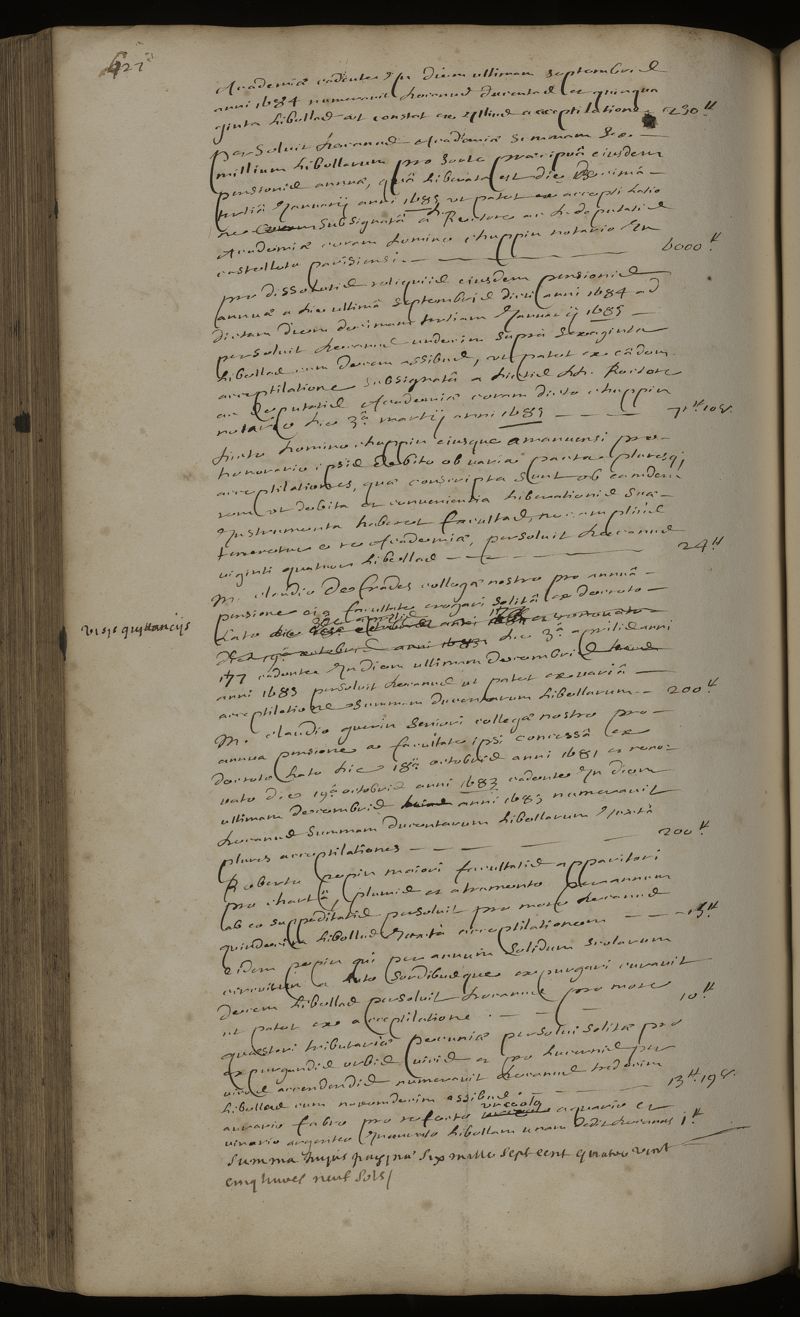 Academiæ cadente In diem ultimam septembris
anni 1684 numeravit decanus ducentas et quinqua
ginta libellas ut constat ex illius acceptilatione 250ᵗᵗ
Persoluit decanus Academiæ summam sex
millium libellarum pro sorte præcipuâ eiusdem
pensionis annuæ, quâ liberata est die decimâ
tertiâ Januarij anni 1685 ut patet ex acceptilatio
ne subsignatâ a Rectore ac deputatis
Academiæ coram domino chuppin notario In
castelleto parisiensi 6000ᵗᵗ
pro dissolutis reliquiis eiusdem pensionis
annuæ a die ultimâ septembris dicti anni 1684 ad
dictam diem decimam tertiam Januarij 1685
persoluit decanus undecim suprà sexaginta
libellas cum decem assibus, ut patet ex eâdem
acceptilatione subsignatâ a dictis DD. Rectore
ac deputatis Academiæ coram dicto chuppin
notario die 3ª martij anni 1685 71ᵗᵗ 10s.
dicto domino chuppin eiusque amanuensi pro
honorario ipsis debito ob varia pacta pluresq;
acceptilationes, quæ conscripta sunt ob eamdem
rem ut debita et convenientia liberationis suæ
Instrumenta haberet facultas, nec amplius
teneretur Academiæ, persoluit decanus
viginti quatuor libellas 24ᵗᵗ
M. claudio Des frades collegæ nostro pro annuâ
pensione ei a facultate erogari solitâ ex decreto
dato die anni
anni 1683 die 3ª aprilis anni
1677 cadente In diem ultimam decembris
anni 1683 persoluit decanus ut patet ex variâ
acceptilatione summam ducentarum libellarum 200ᵗᵗ
visis quittancijs
M. claudio guerin seniori collegæ nostro pro
annua pensione a facultate ipsi concessâ ex
decreto dato die 18ª octobris anni 1681 et reno
vato die 19ª octobris anni 1683 cadente In diem
ultimam decembris anni 1683 numeravit
decanus summam ducentarum libellarum Juxtà
plures acceptilationes 200ᵗᵗ
Roberto pepin maiori facultatis apparitori
pro chartâ, plumis et atramento per annum
ab eo suppeditatis persoluit pro more decanus
quindecim libellas Juxtà acceptilationem 15ᵗᵗ
Eidem pepin qui per annum solidum scolarum
circuitum a luto sordibusque expurgari curavit
decem libellas persoluit decanus pro more
ut patet ex acceptilatione 10ᵗᵗ
quæstori tributariæ pecuniæ persolui solitæ pro
expurgandis urbis vicis et pro lucernis per
vicos accendendis numeravit decanus tredecim
libellas cum novemdecim assibus 13ᵗᵗ 19s.
aurario fabro pro refecto urceolo aquario et
vinario argenteo libellam unam dedit decanus 1ᵗᵗ
Summa hujus paginæ six mille sept cent quatre vint
cinq livres neuf sols